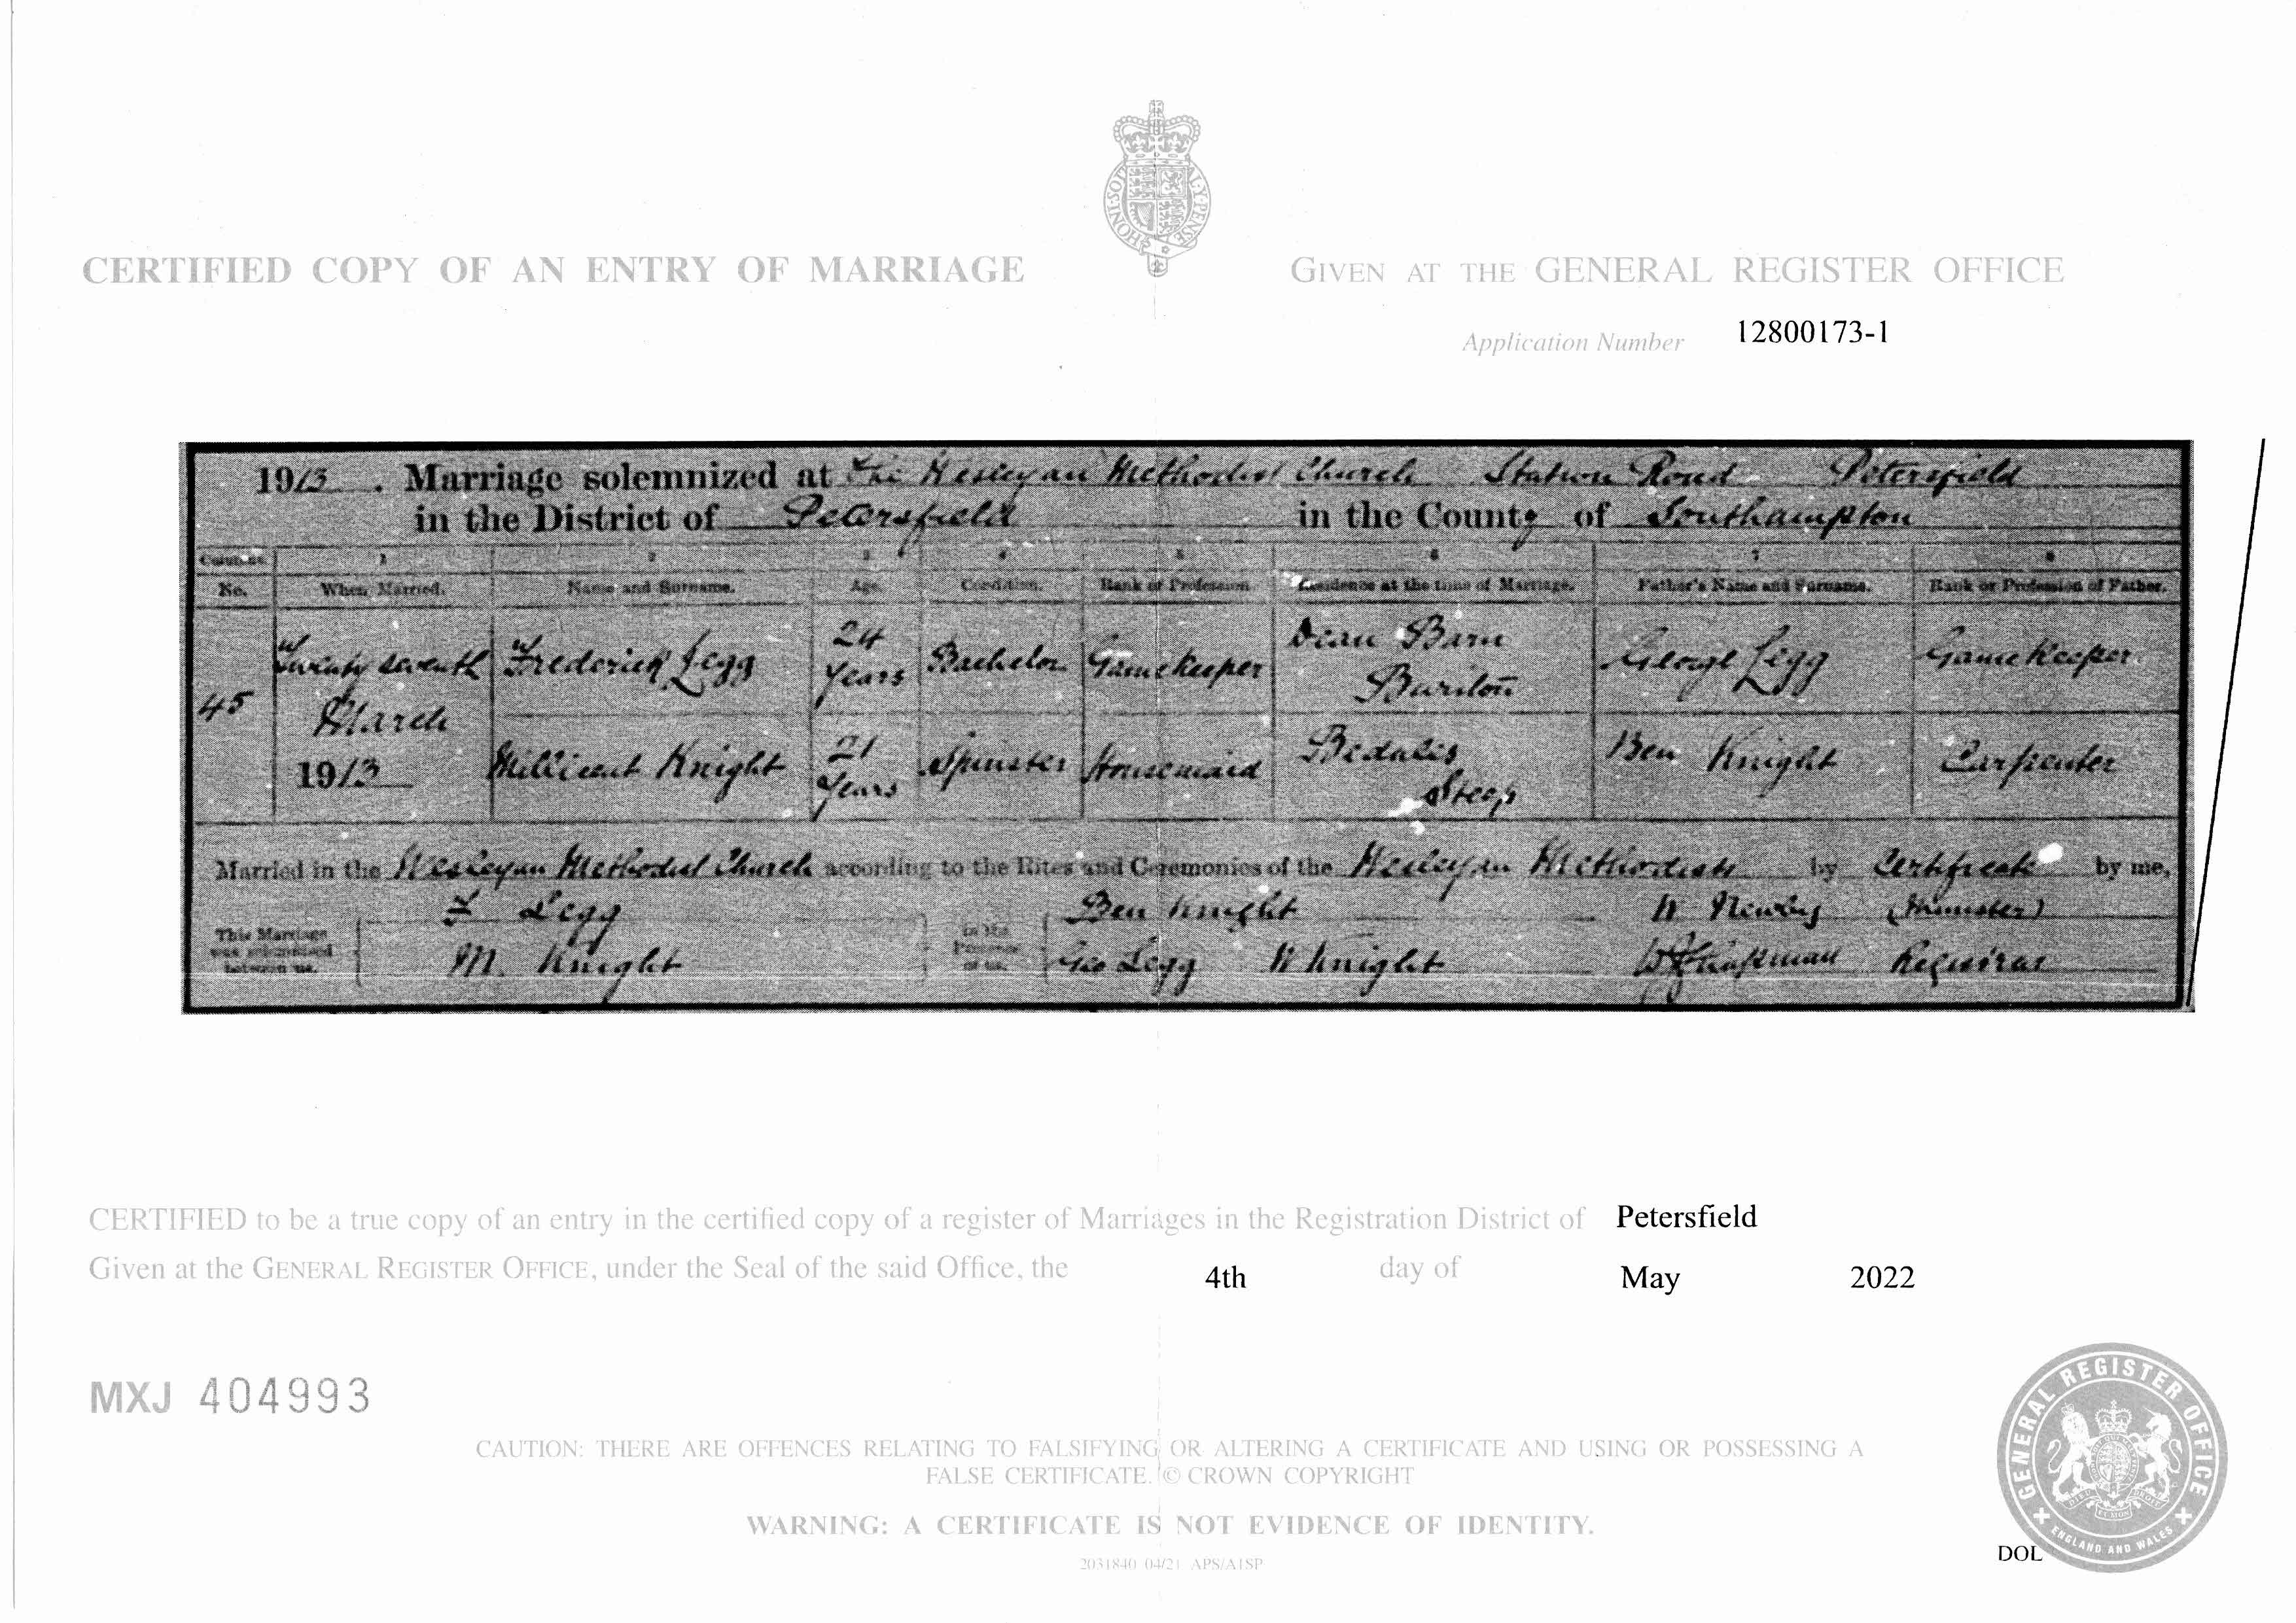 HONI·SOI
AL·Y·PENSE
CERTIFIED COPY OF AN ENTRY OF MARRIAGE
GIVEN AT THE GENERAL REGISTER OFFICE
Application Number 12800173-1
1913. Marriage solemnized at The Wesleyan Methodist Church Station Road Petersfield
in the District of Petersfield in the County of Southampton
Columns 1 2 3 4 5 6 7 8
No. When Married. Name and Surname. Age. Condition. Rank or Profession Residence at the time of Marriage. Father's Name and Surname. Rank or Profession of Father.
45 Twenty seventh March 1913
Frederick Legg 24 Years Bachelor Gamekeeper Dean Barn Buriton George Legg Gamekeeper
Millicent Knight 21 Years Spinster Housemaid Bedales Steep Ben Knight Carpenter
Married in the Wesleyan Methodist Church according to the Rites and Ceremonies of the Wesleyan Methodists by Certificate by me,
This Marriage was solemnized between us, F Legg M. Knight
in the Presence of us, Ben Knight Geo Legg W Knight
W Newby (Minister)
Chapman Registrar
CERTIFIED to be a true copy of an entry in the certified copy of a register of Marriages in the Registration District of Petersfield
Given at the GENERAL REGISTER OFFICE, under the Seal of the said Office, the 4th day of May 2022
MXJ 404993
CAUTION: THERE ARE OFFENCES RELATING TO FALSIFYING OR ALTERING A CERTIFICATE AND USING OR POSSESSING A
FALSE CERTIFICATE. © CROWN COPYRIGHT
WARNING: A CERTIFICATE IS NOT EVIDENCE OF IDENTITY.
2031840 04/21 APS/A1SP
DOL
GENERAL REGISTER OFFICE
ENGLAND AND WALES